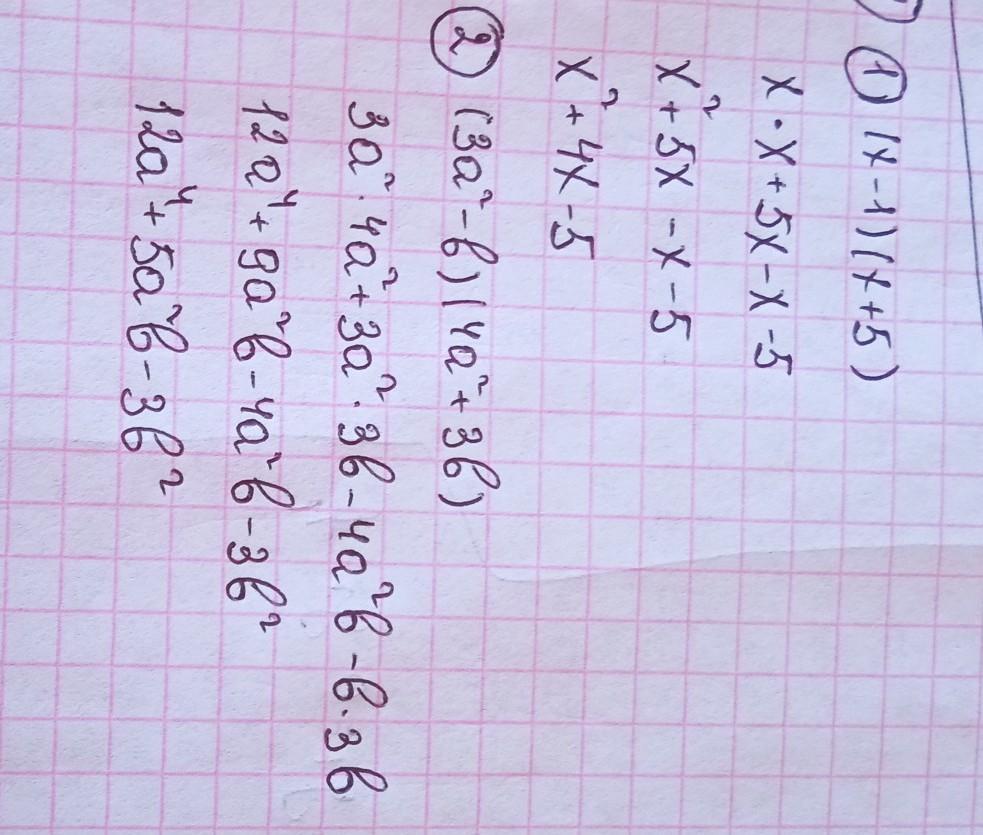 ① (x-1)(x+5)
x·x+5x-x-5
x²+5x-x-5
x²+4x-5
② (3a²-b)(4a²+3b)
3a²·4a²+3a²·3b-4a²b-b·3b
12a⁴+9a²b-4a²b-3b²
12a⁴+5a²b-3b²